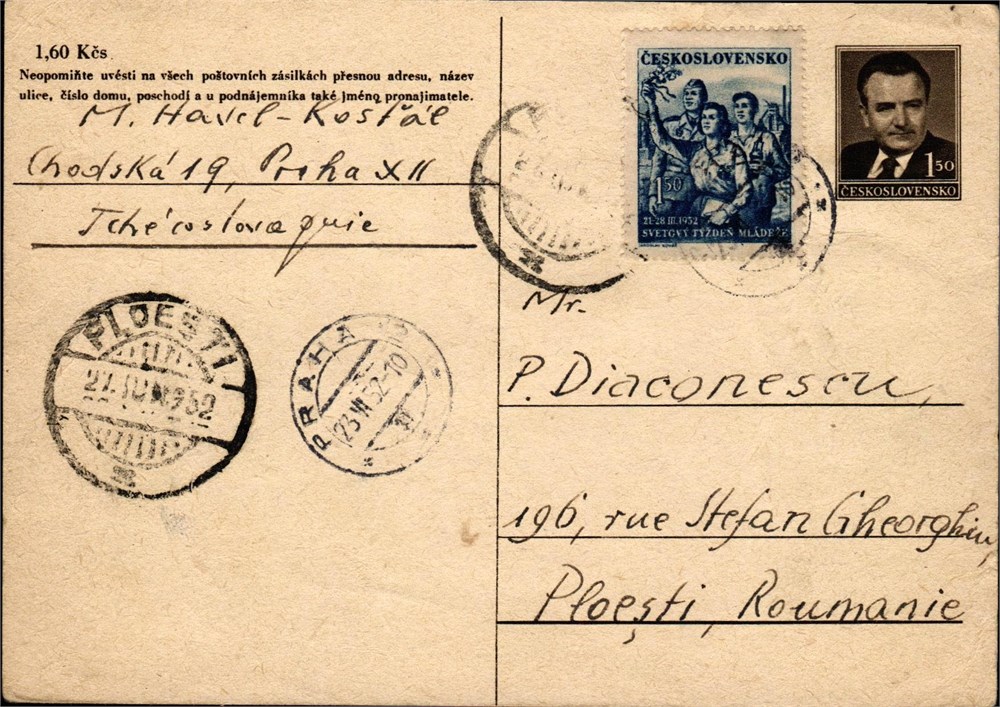 1,60 Kčs
Neopomiňte uvésti na všech poštovních zásilkách přesnou adresu, název
ulice, číslo domu, poschodí a u podnájemníka také jméno pronajimatele.
M. Havel-Košťál
Chodská 19, Praha XII
Tchécoslovaquie
ČESKOSLOVENSKO
1.50
21-28 III. 1952
SVETOVÝ TÝŽDEŇ MLÁDEŽE
1 50
ČESKOSLOVENSKO
PLOESTI
1952
PRAHA 12
23.VI.52-10
Mr.
P. Diaconescu,
196, rue Stefan Gheorghiu,
Ploeşti, Roumanie